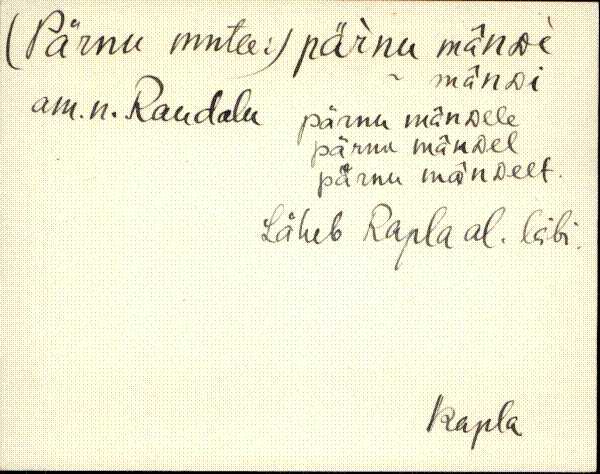 (Pärnu mntee:) pärnu mândè
~ mândi
am. n. Raudalu pärnu mândele
pärnu mândel
pärnu mândelt.
Läheb Rapla al. läbi.
Rapla